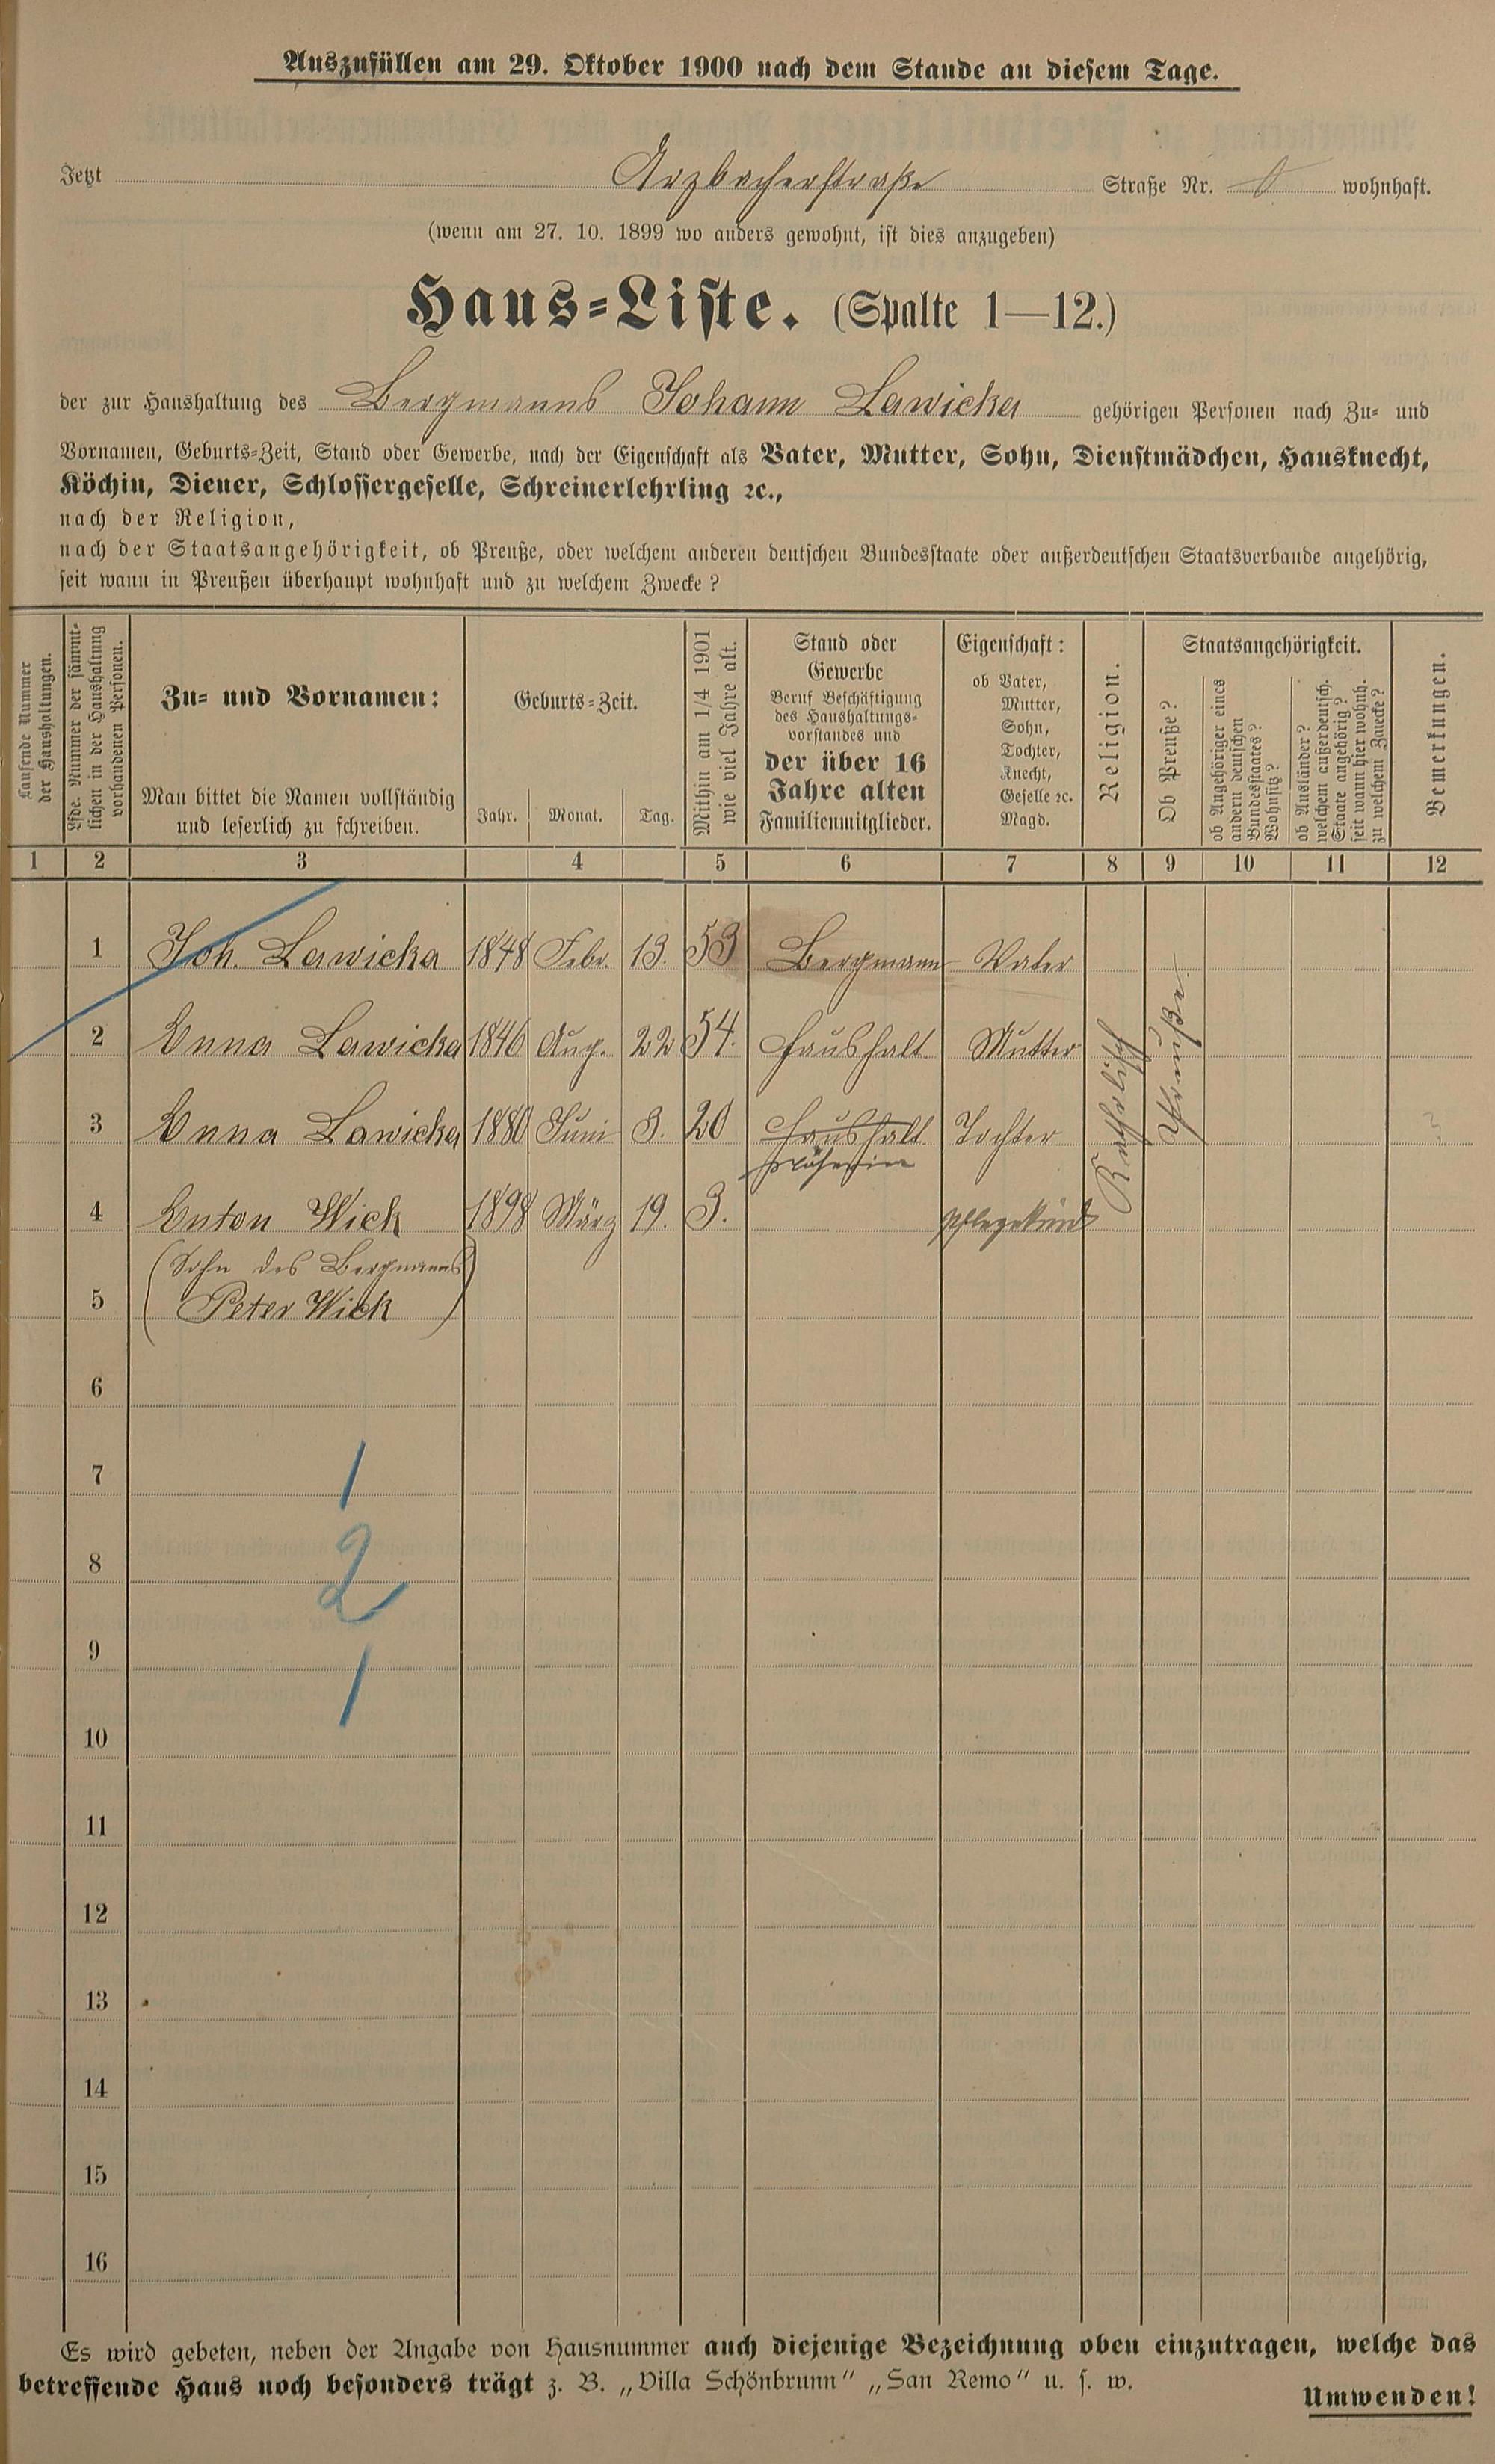 Auszufüllen am 29. Oktober 1900 nach dem Stande an diesem Tage.
Jetzt Arzbacherstraße Straße Nr. wohnhaft.
(wenn am 27. 10. 1899 wo anders gewohnt, ist dies anzugeben)
Haus-Liste. (Spalte 1—12.)
der zur Haushaltung des Bergmanns Johann Lawicka gehörigen Personen nach Zu- und
Vornamen, Geburts-Zeit, Stand oder Gewerbe, nach der Eigenschaft als Vater, Mutter, Sohn, Dienstmädchen, Hausknecht,
Köchin, Diener, Schlossergeselle, Schreinerlehrling ꝛc.,
nach der Religion,
nach der Staatsangehörigkeit, ob Preuße, oder welchem anderen deutschen Bundesstaate oder außerdeutschen Staatsverbande angehörig,
seit wann in Preußen überhaupt wohnhaft und zu welchem Zwecke?
Laufende Nummer
der Haushaltungen.
Lfde. Nummer der sämmt-
lichen in der Haushaltung
vorhandenen Personen.
Zu- und Vornamen:
Man bittet die Namen vollständig
und leserlich zu schreiben.
Geburts-Zeit.
Jahr. Monat. Tag.
Mithin am 1/4 1901
wie viel Jahre alt.
Stand oder
Gewerbe
Beruf Beschäftigung
des Haushaltungs-
vorstandes und
der über 16
Jahre alten
Familienmitglieder.
Eigenschaft:
ob Vater,
Mutter,
Sohn,
Tochter,
Knecht,
Geselle ꝛc.
Magd.
Religion.
Staatsangehörigkeit.
Ob Preuße?
ob Angehöriger eines
andern deutschen
Bundesstaates?
Wohnsitz?
ob Ausländer?
welchem außerdeutsch.
Staate angehörig?
seit wann hier wohnh.
zu welchem Zwecke?
Bemerkungen.
1 2 3 4 5 6 7 8 9 10 11 12
1 Joh. Lawicka 1848 Febr. 13. 53 Bergmann Vater
2 Anna Lawicka 1846 Aug. 22 54. Haushalt Mutter
3 Anna Lawicka 1880 Juni 3. 20 Haushalt Tochter
Näherin
4 Anton Wick 1898 März 19. 3. Pflegekind
Katholisch
Preuße.
(Sohn des Bergmanns
5 Peter Wick)
6
7 1
8 2
9 1
10
11
12
13
14
15
16
Es wird gebeten, neben der Angabe von Hausnummer auch diejenige Bezeichnung oben einzutragen, welche das
betreffende Haus noch besonders trägt z. B. „Villa Schönbrunn" „San Remo" u. s. w.
Umwenden!